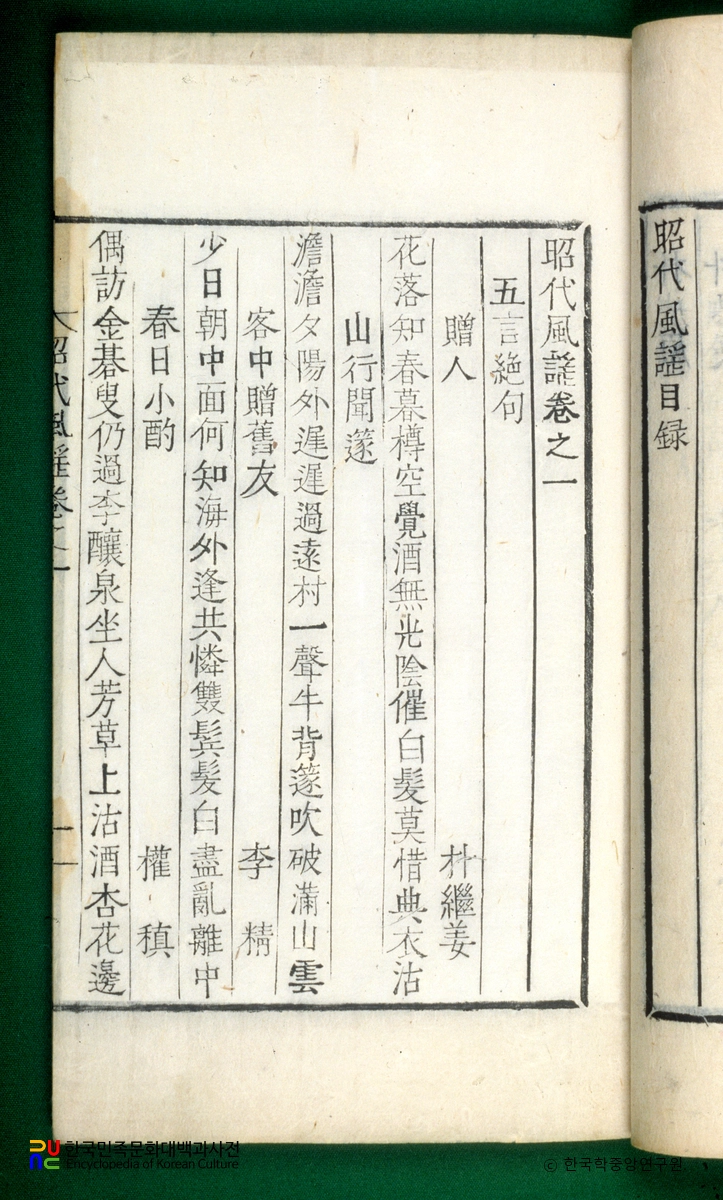 昭代風謠目録
昭代風謠卷之一
五言絶句
贈人 朴繼姜
花落知春暮樽空覺酒無光陰催白髮莫惜典衣沽
山行聞篴
澹澹夕陽外遲遲過遠村一聲牛背篴吹破滿山雲
客中贈舊友 李 精
少日朝中面何知海外逢共憐雙鬂髮白盡亂離中
春日小酌 權 稹
偶訪金碁叟仍過李釀泉坐人芳草上沽酒杏花邊
昭代風謠卷之一
一
한국민족문화대백과사전
Encyclopedia of Korean Culture
© 한국학중앙연구원